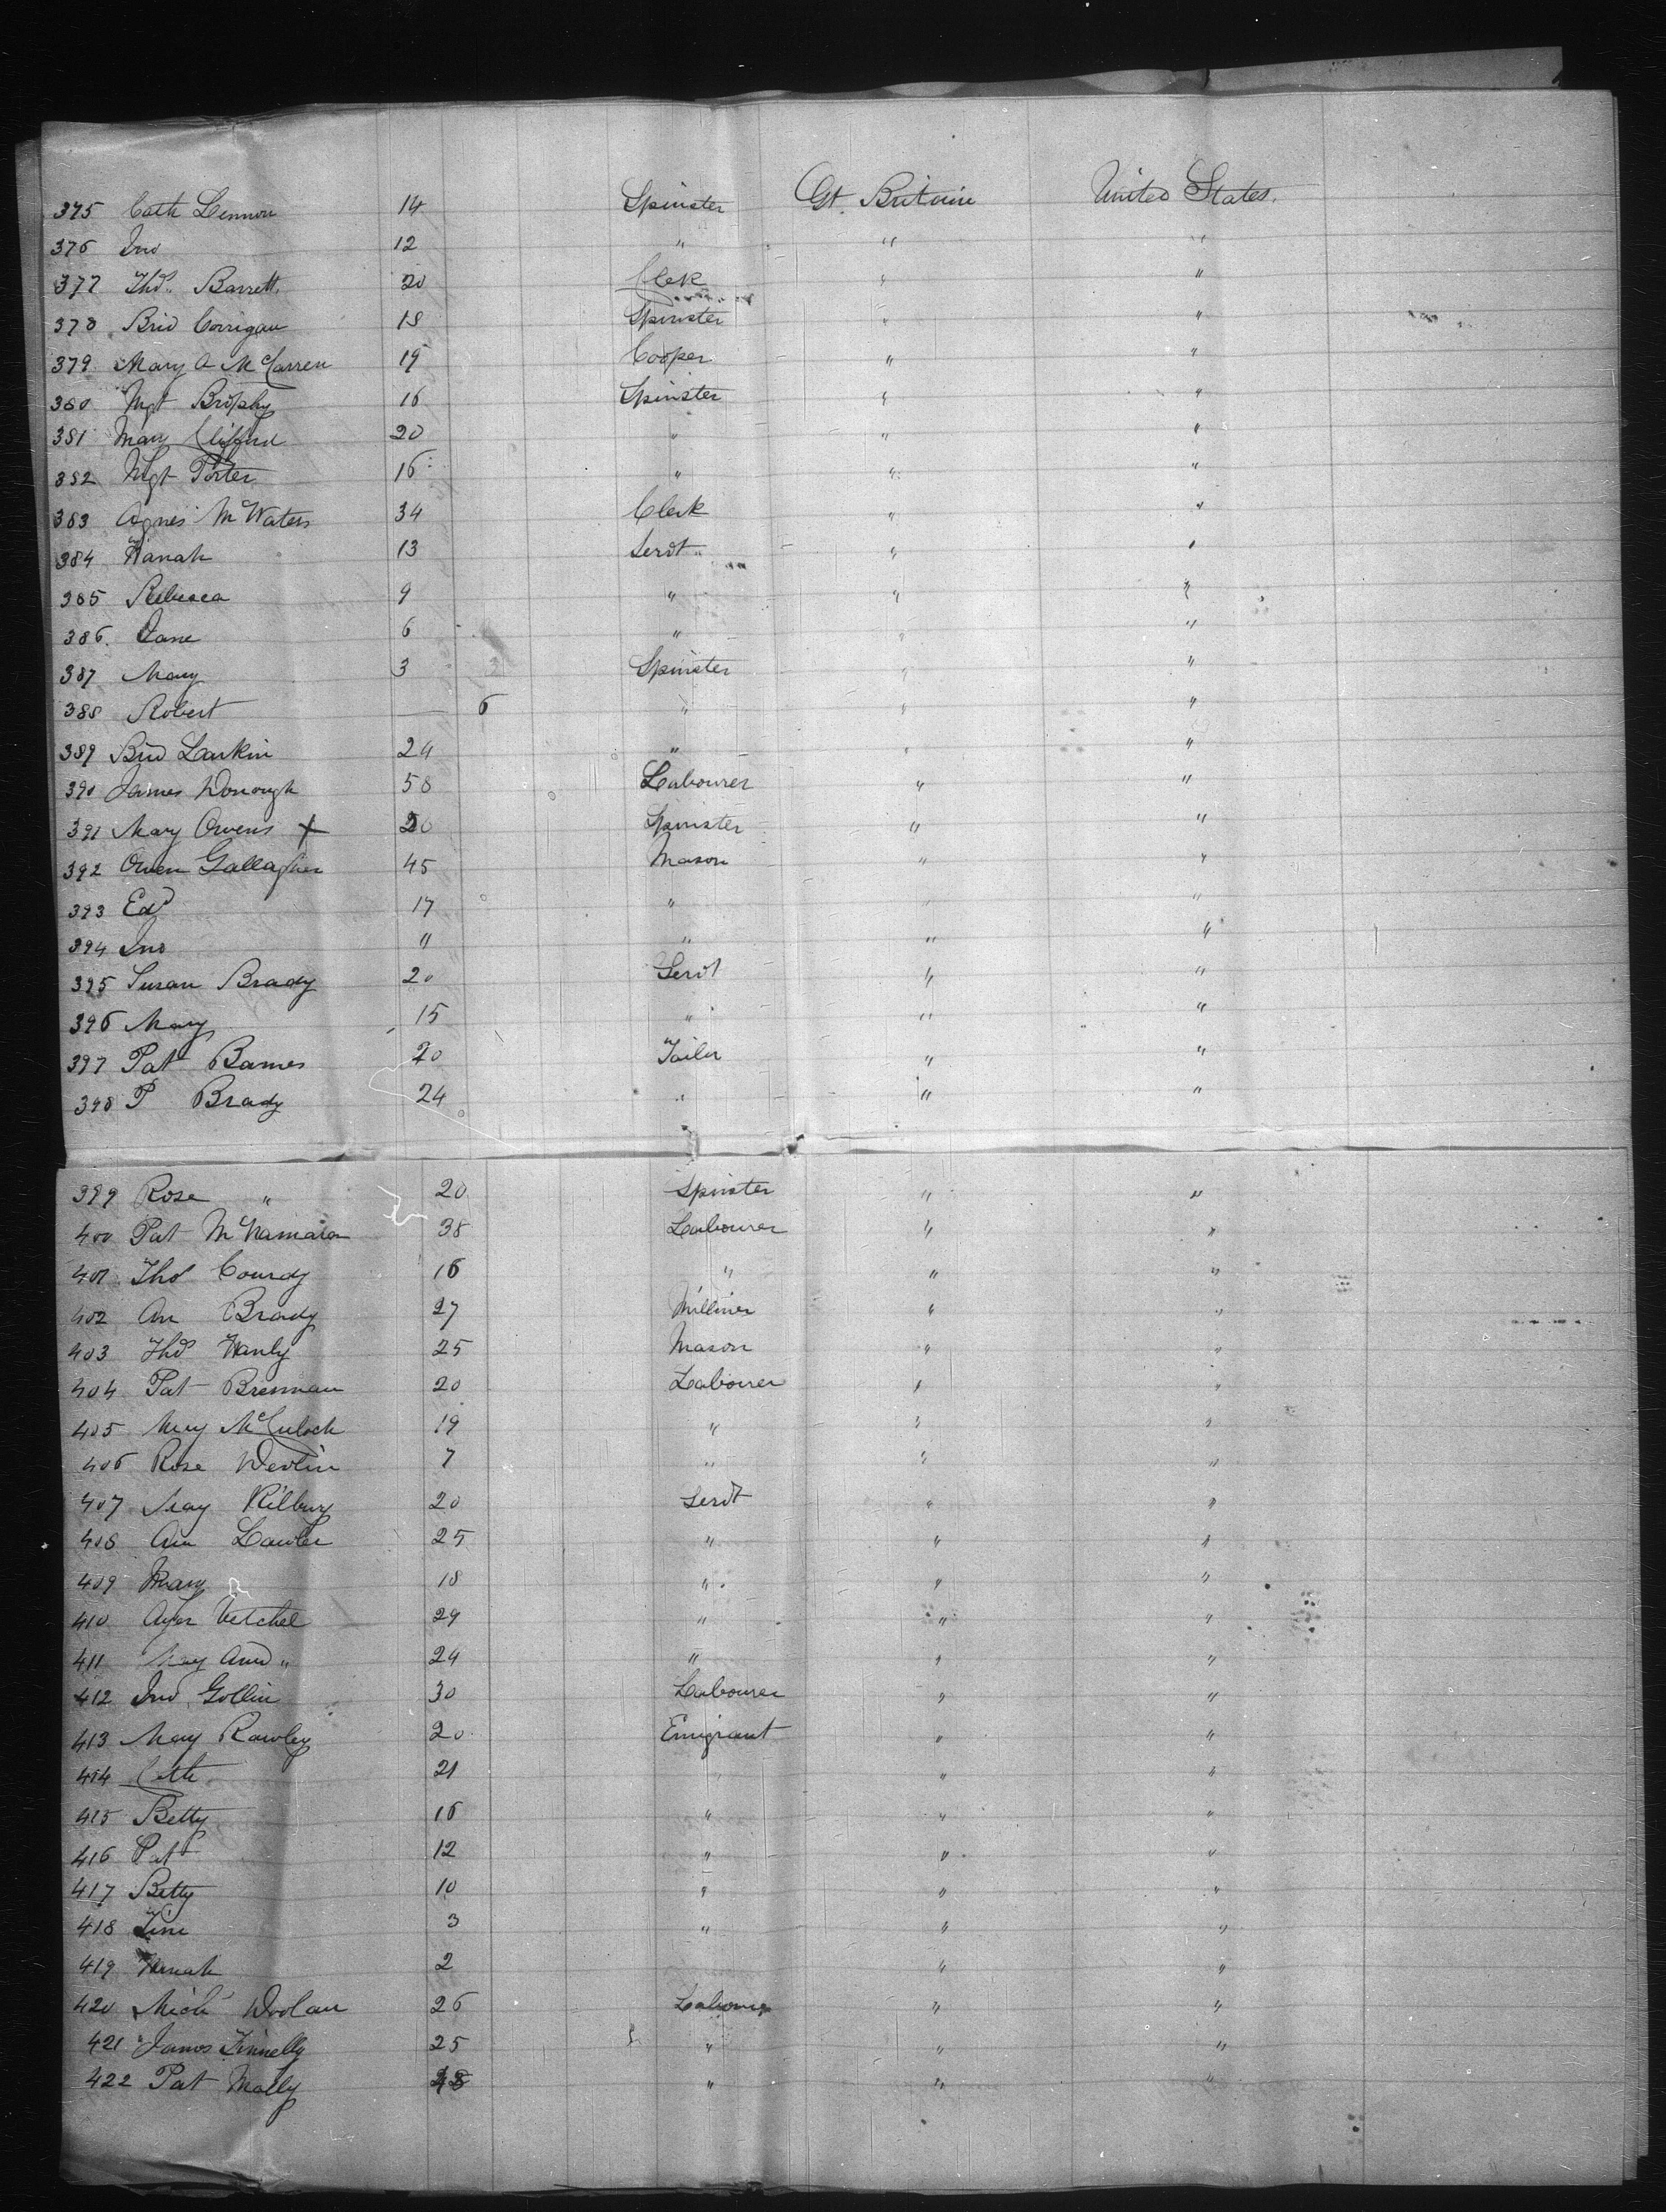 375 Cath Lennon 14 Spinster Gt. Britain United States.
376 Jno 12 " " "
377 Thos. Barrett 20 Clek " "
378 Brid Corrigan 18 Spinster " "
379 Mary A McCarren 19 Cooper " "
380 Mgt Brophy 16 Spinster " "
381 Mary Clifford 20 " " "
382 Mgt Porter 16 " " "
383 Agnes McWaters 34 Clerk " "
384 Hanah 13 Servt " "
385 Rebecca 9 " " "
386. Jane 6 " " "
387 Mary 3 Spinster " "
388 Robert — 6 " " "
389 Brid Larkin 24 " " "
390 James Donough 58 Labourer " "
391 Mary Owens X 20 Spinster " "
392 Owen Gallagher 45 Mason " "
393 Ed 17 " " "
394 Jno 11 " " "
395 Susan Brady 20 Servt " "
396 Mary 15 " " "
397 Pat Barnes 20 Tailor " "
398 P Brady 24 " " "
399 Rose " 20 Spinster " "
400 Pat McNamara 38 Labourer " "
401 Thos 16 " " "
402 Ann Brady 27 Milliner " "
403 Thos Hanly 25 Mason " "
404 Pat Brennan 20 Labourer " "
405 Mary McCuloch 19 " " "
406 Rose Devlin 7 " " "
407 May Kilbury 20 Servt " "
408 Ann Lawler 25 " " "
409 Mary 18 " " "
410 Vetchel 29 " " "
411 May Ann " 24 " " "
412 Jno Gollin 30 Labourer " "
413 May Rawley 20 Emigrant " "
414 Cath 21 " "
415 Betty 16 " " "
416 Pat 12 " " "
417 Betty 10 " " "
418 3 " " "
419 Hanah 2 " "
420 Mich Woolan 26 Labourer " "
421 James Finnelly 25 " " "
422 Pat Mally " " "